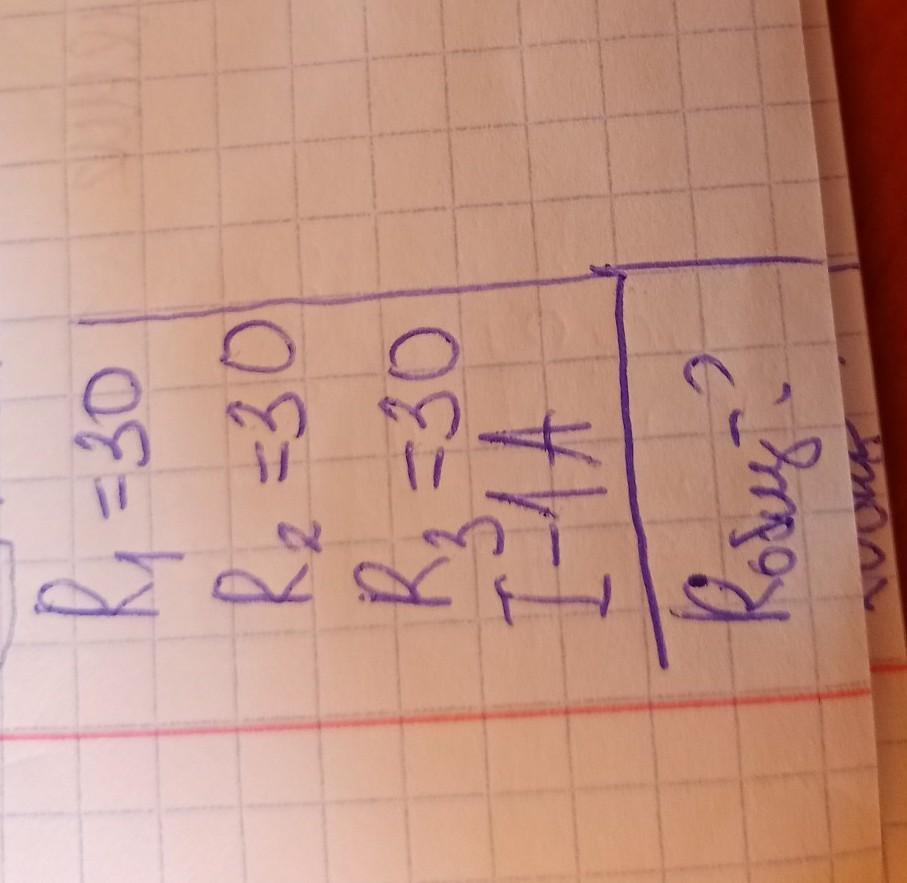 R1 = 30
R2 = 30
R3 = 30
I - 1A
Rобщ - ?